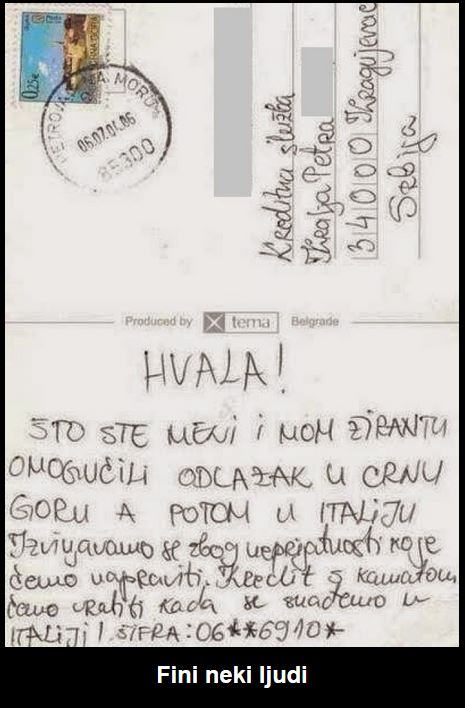 0,25€
MORU
06.07.01.06
85300
Kreditna služba
Kralja Petra
34000 Kragujevac
Srbija
Produced by X tema Belgrade
HVALA!
ŠTO STE MENI I MOM ŽIRANTU
OMOGUĆILI ODLAZAK U CRNU
GORU A POTOM U ITALIJU
Izvinjavamo se zbog neprijatnosti koje
ćemo napraviti. Kredit s kamatom
ćemo vratiti kada se snađemo u
ITALIJI! ŠIFRA: 06**6910*
Fini neki ljudi